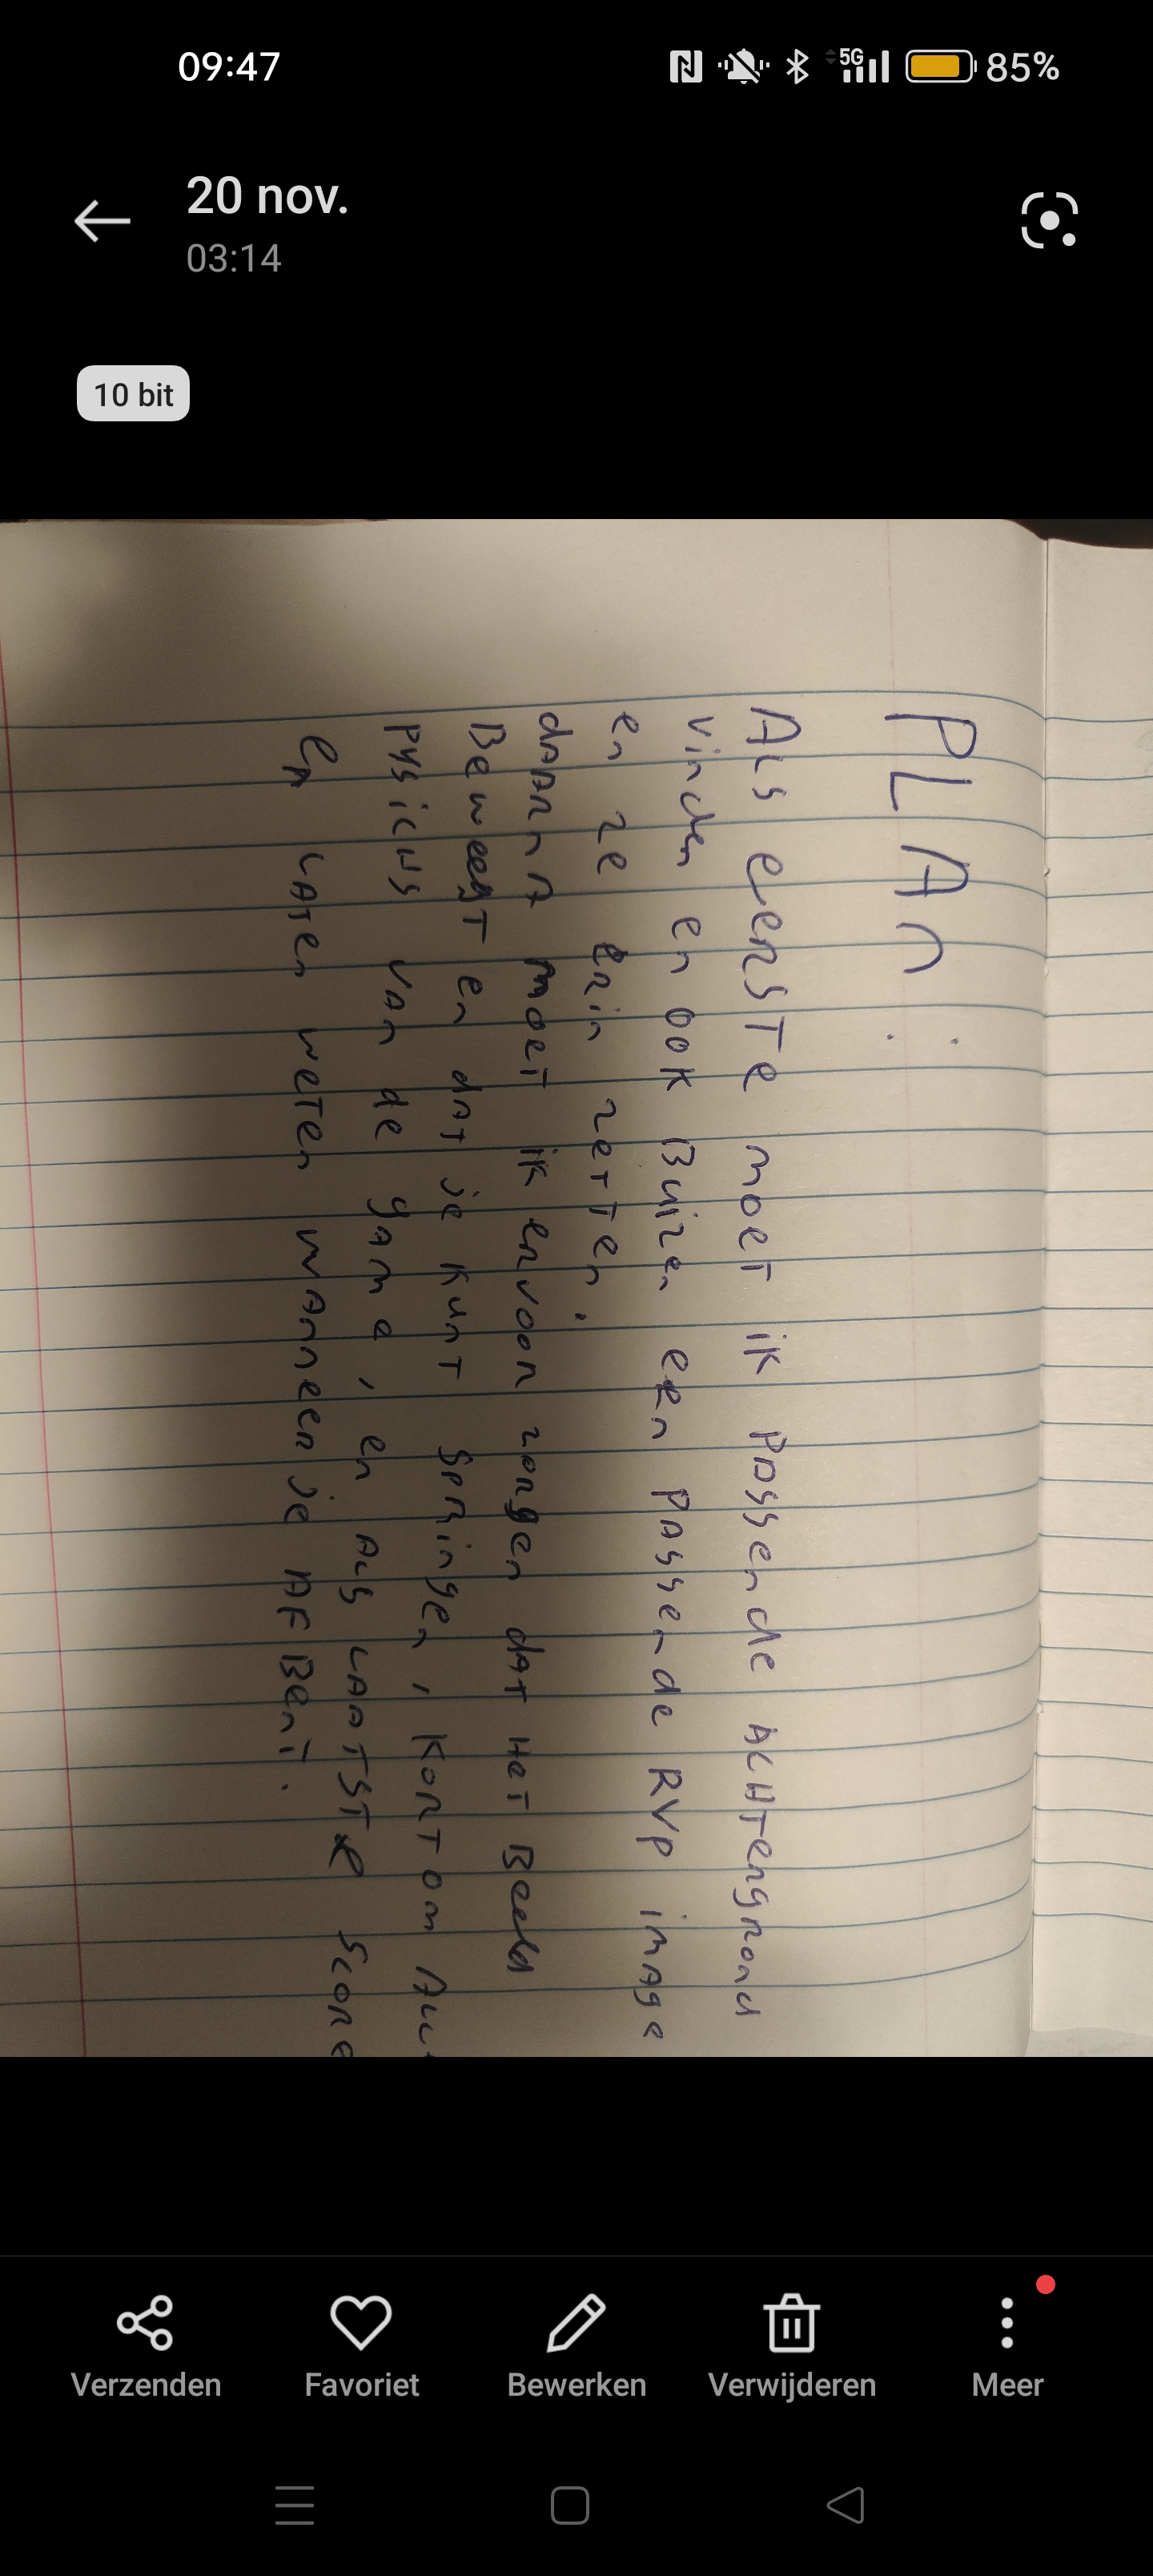 09:47
5G
85%
20 nov.
03:14
10 bit
PLAn:
Als eerste moet ik passende achtergrond
vinden en ook Buizen een passende RVP image
en ze erin zetten.
daarna moet ik ervoor zorgen dat het Beeld
Beweegt en dat je kunt springen, kortom
pysicus van de game, en als laatste score
en laten weten wanneer je af Bent.
Verzenden
Favoriet
Bewerken
Verwijderen
Meer